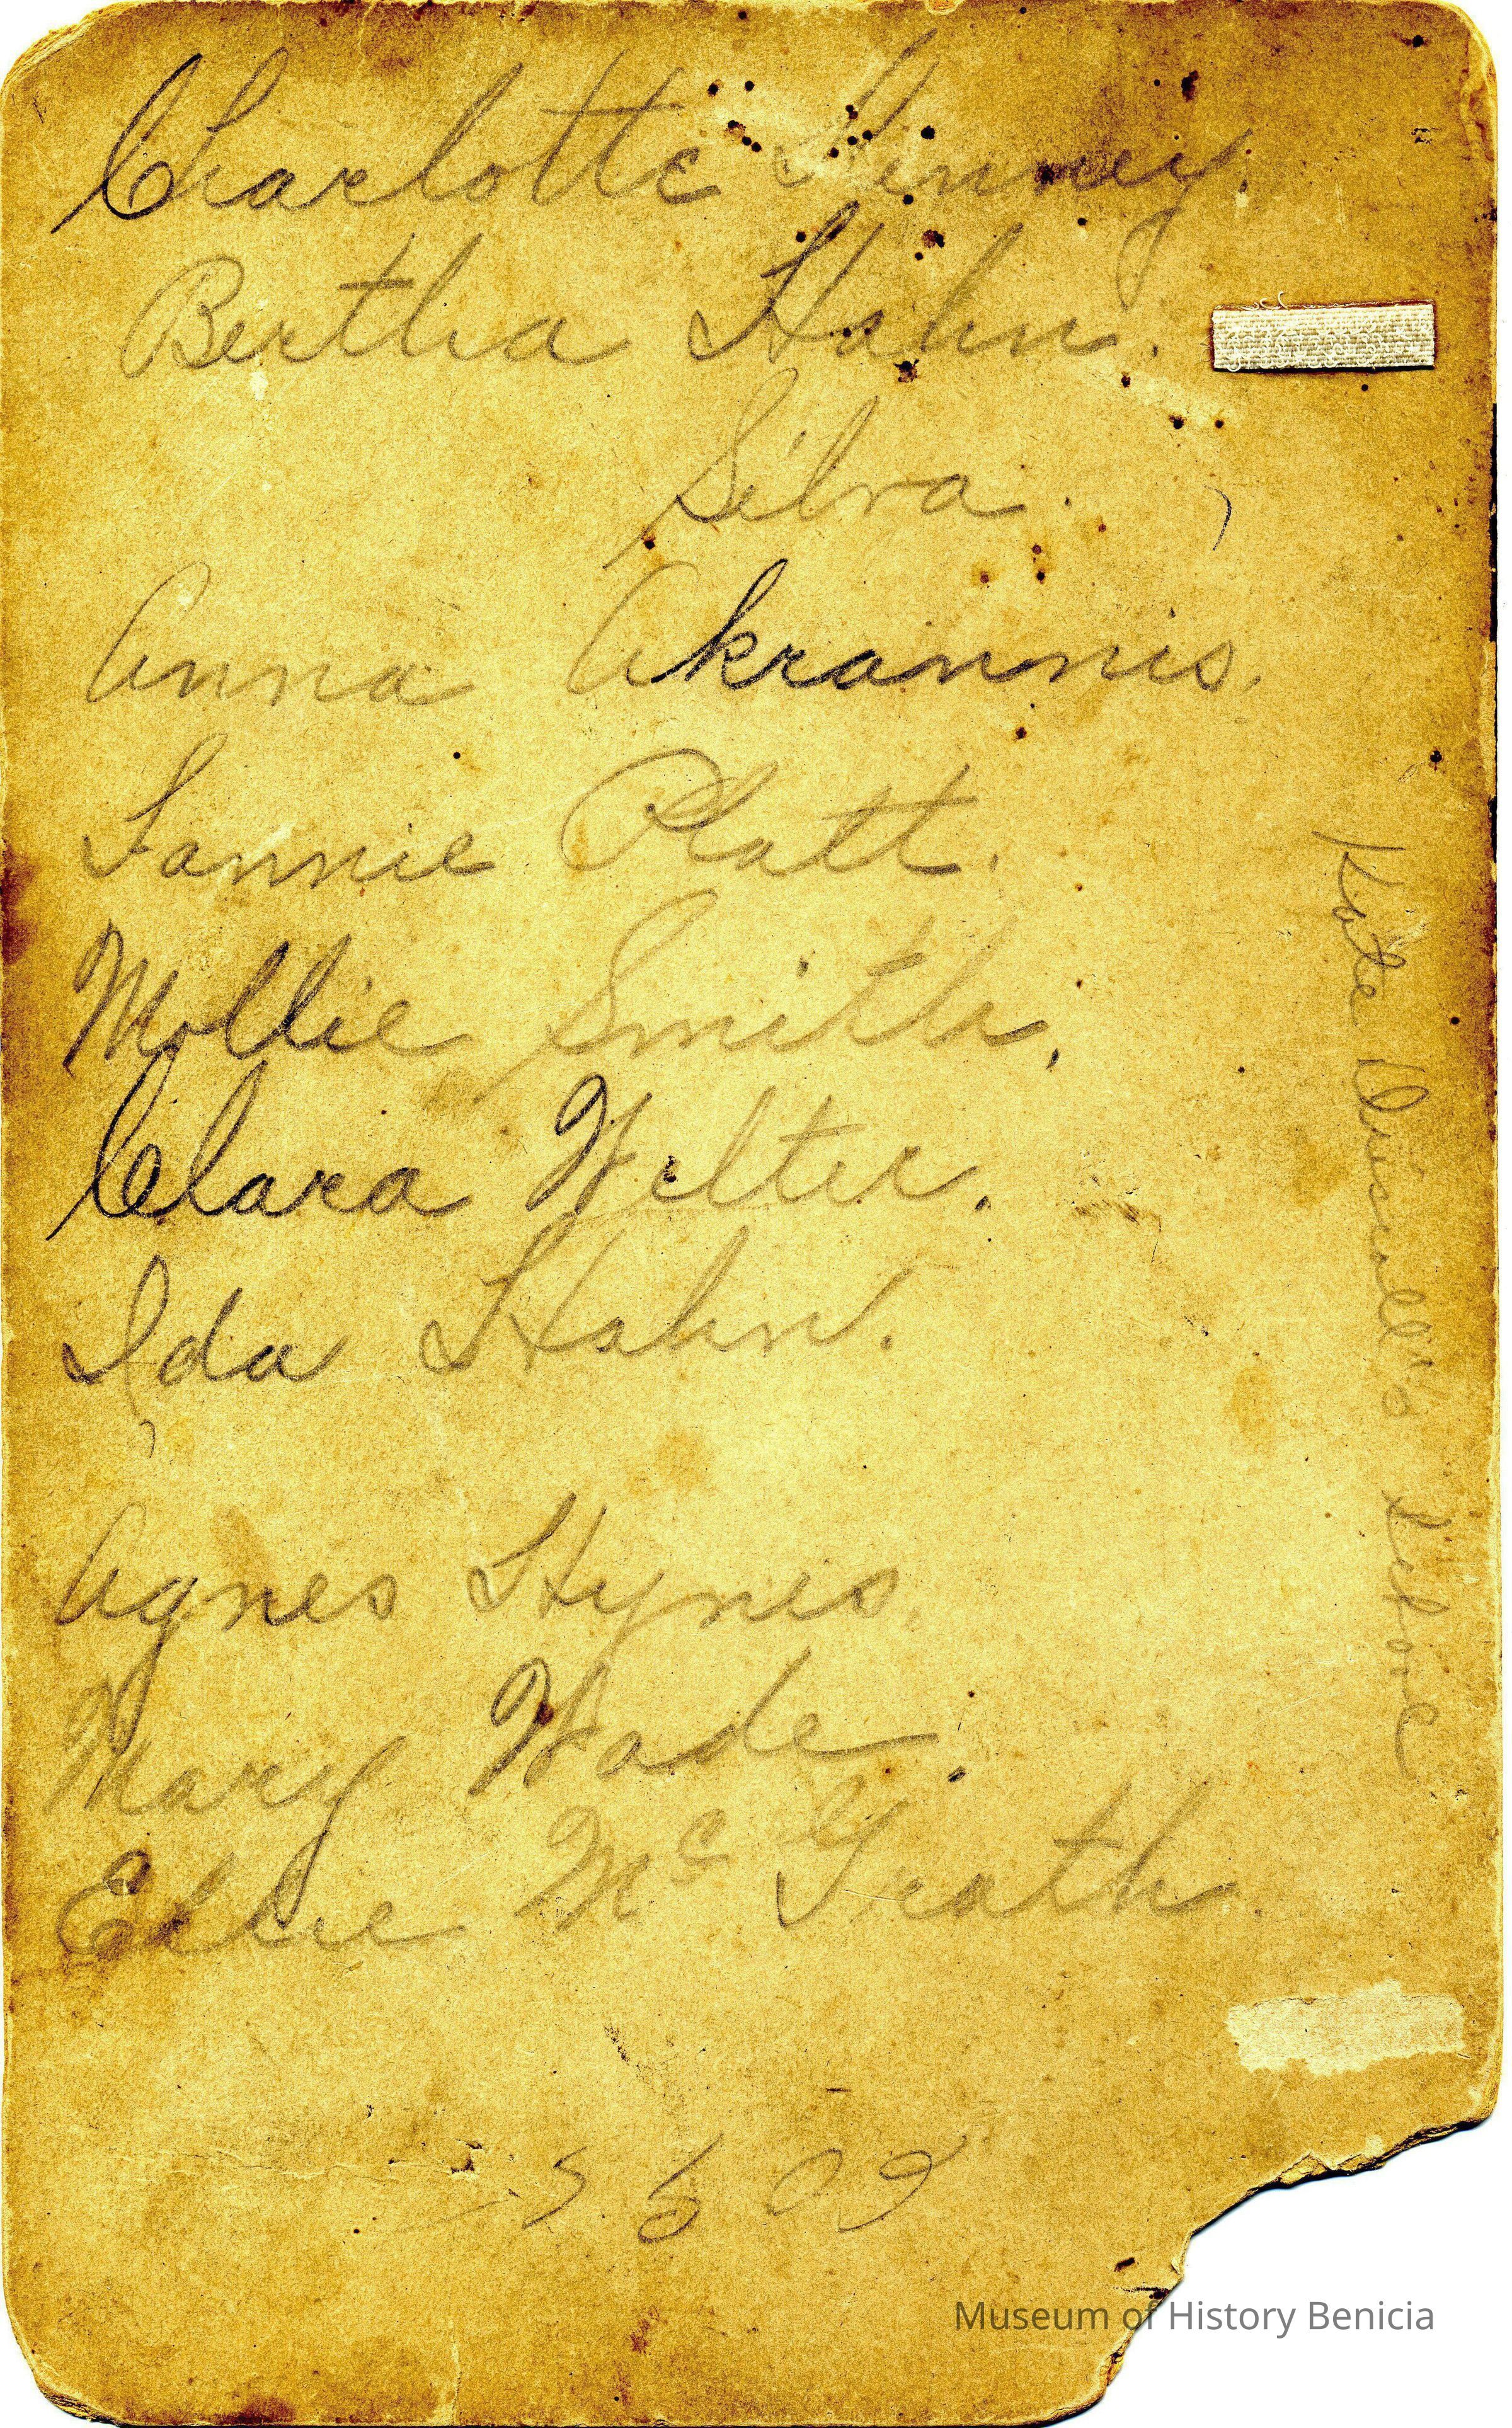 Charlotte Finney.
Bertha Hahn.
Silva.
Anna Akrannis.
Fannie Platt.
Mollie Smith.
Clara Welter.
Ida Hahn.
Agnes Hynes.
Mary Wade.
Ellie Mc Grath.
Kate Driscoll's School
Museum of History Benicia